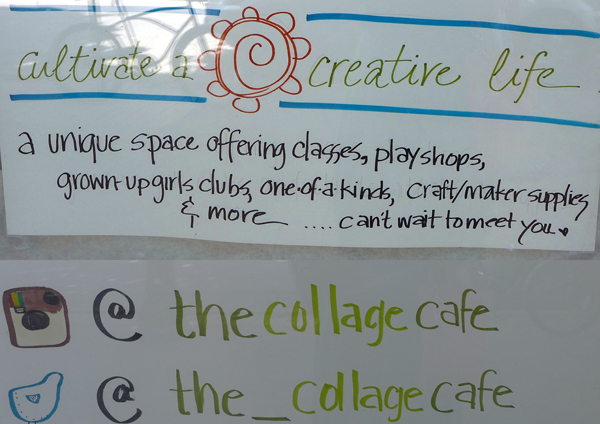 cultivate a creative life
a unique space offering classes, playshops,
grown-up girls clubs, one-of-a-kinds, craft/maker supplies
& more .... can't wait to meet you
@ thecollagecafe
@ the_collagecafe